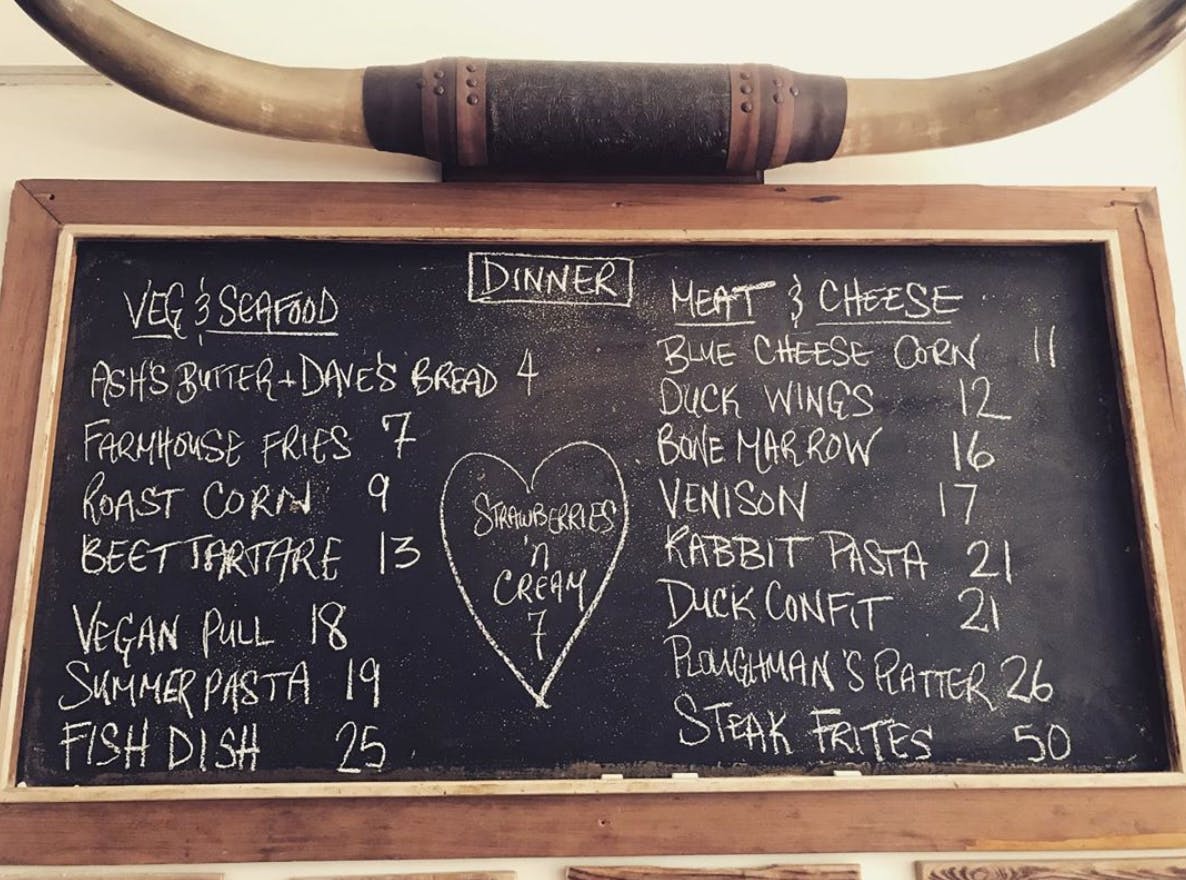 DINNER
VEG & SEAFOOD
ASH'S BUTTER + DAVE'S BREAD 4
FARMHOUSE FRIES 7
ROAST CORN 9
BEET TARTARE 13
VEGAN PULL 18
SUMMER PASTA 19
FISH DISH 25
STRAWBERRIES
'n
CREAM
7
MEAT & CHEESE
BLUE CHEESE CORN 11
DUCK WINGS 12
BONE MARROW 16
VENISON 17
RABBIT PASTA 21
DUCK CONFIT 21
PLOUGHMAN'S PLATTER 26
STEAK FRITES 50